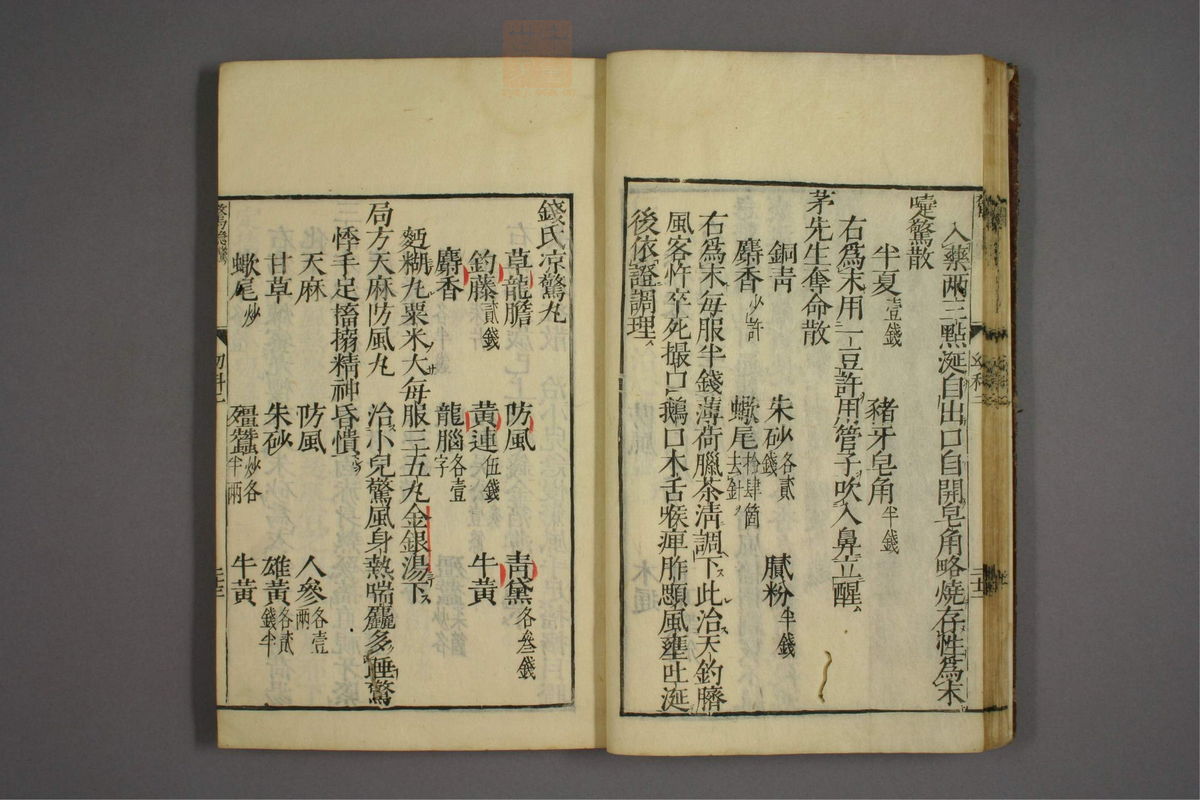 入藥兩三點涎自出口自開皂角略燒存性爲末
嚏驚散
半夏壹錢 豬牙皂角半錢
右爲末用一豆許用管子吹入鼻立醒
茅先生奪命散
銅青 朱砂各貳錢 膩粉半錢
麝香少許 蠍尾去針拾肆箇
右爲末每服半錢薄荷臘茶清調下此治天釣臍
風客忤卒死撮口鵝口木舌喉痺胙顋風壅吐涎
後依證調理
錢氏凉驚丸
草龍膽 防風 青黛各叁錢
釣藤貳錢 黃連伍錢 牛黃
麝香 龍腦各壹字
麪糊丸粟米大每服三五丸金銀湯下
局方天麻防風丸 治小兒驚風身熱喘麤多睡驚
悸手足搐搦精神昏憒
天麻 防風 人參各壹兩
甘草 朱砂 雄黃各貳錢半
蠍尾炒 殭蠶炒各半兩 牛黃
幼科二